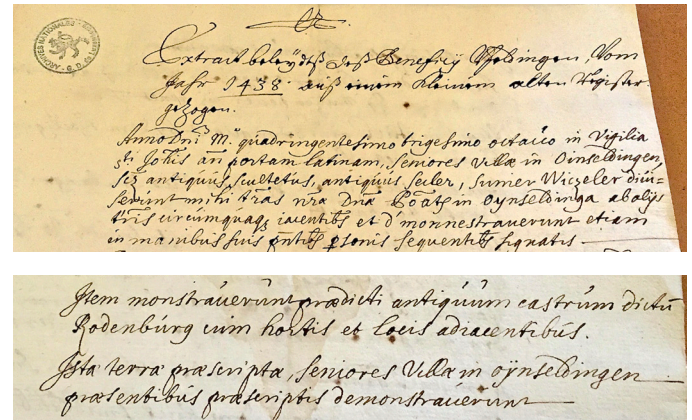 ARCHIVES NATIONALES
Extract beleydtß deß Beneficij Pfeldingen, Vom
Jahr 1438 auß einem kleinem alten Register
gezogen.
Anno Dni M.º quadringentesimo trigesimo octavo in Vigilia
sti Johis an portam latinam, seniores villæ in Oinseldingen,
scz antiquus scultetus, antiquus seiler, sumer Wiczeler divi-
serunt mihi tras nrã Dnã in oynseldinga ab alijs
tris circumquaq; iacentibs et d'monnestraverunt etiam
in manibus suis pntibs psonis sequentibs signatis
Item monstraverunt prædicti antiquum castrum dictũ
Rodenburg cum hortis et locis adiacentibus.
Ista terra præscripta, seniores villæ in oÿnseldingen
præsentibus præscriptis demonstraverunt